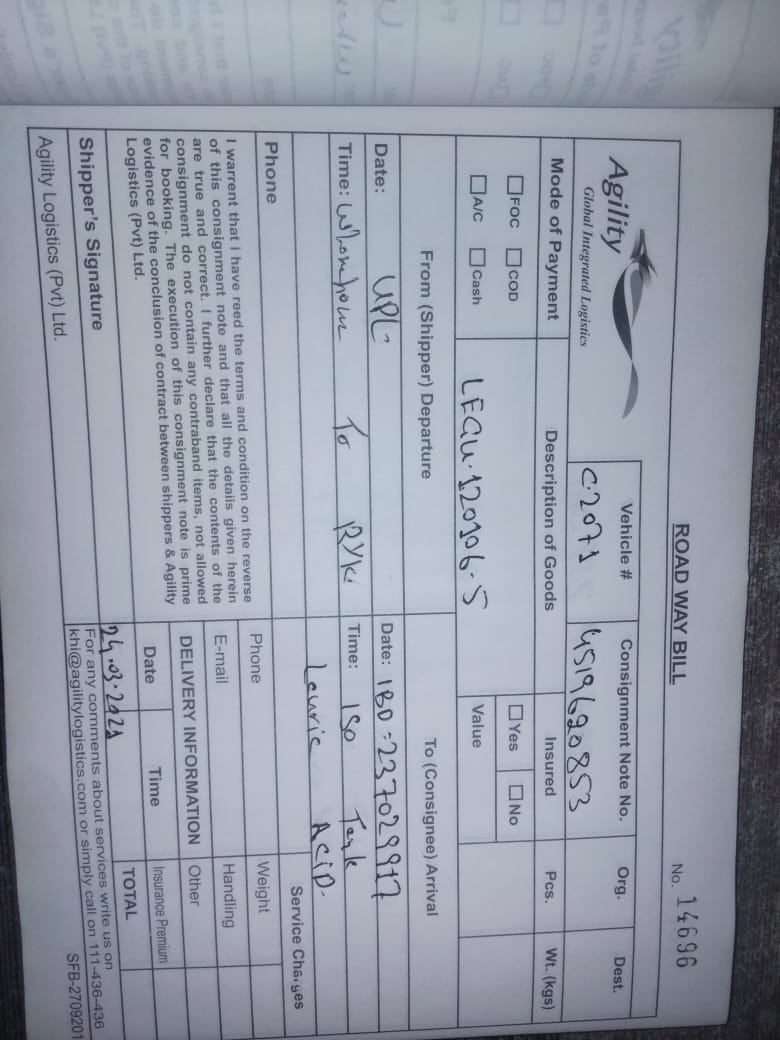 ROAD WAY BILL
No. 14696
Agility
Global Integrated Logistics
Vehicle #
C-2071
Consignment Note No.
4519620853
Org.
Dest.
Mode of Payment
Description of Goods
Insured
Pcs.
Wt. (kgs)
FOC COD
Yes No
A/C Cash
LEGU-120106-5
Value
From (Shipper) Departure
To (Consignee) Arrival
Date: UPL
Date: IBD = 237029917
Time: To RYK
Time: ISO Tank
Lauric ACiD-
Service Charges
Phone
I warrent that i have reed the terms and condition on the reverse
of this consignment note and that all the details given herein
are true and correct. I further declare that the contents of the
consignment do not contain any contraband items, not allowed
for booking. The execution of this consignment note is prime
evidence of the conclusion of contract between shippers & Agility
Logistics (Pvt) Ltd.
Phone
Weight
E-mail
Handling
DELIVERY INFORMATION
Other
Date
Time
Insurance Premium
24.03.2021
TOTAL
Shipper's Signature
For any comments about services write us on
khi@agilitylogistics.com or simply call on 111-436-436
Agility Logistics (Pvt) Ltd.
SFB-2709201